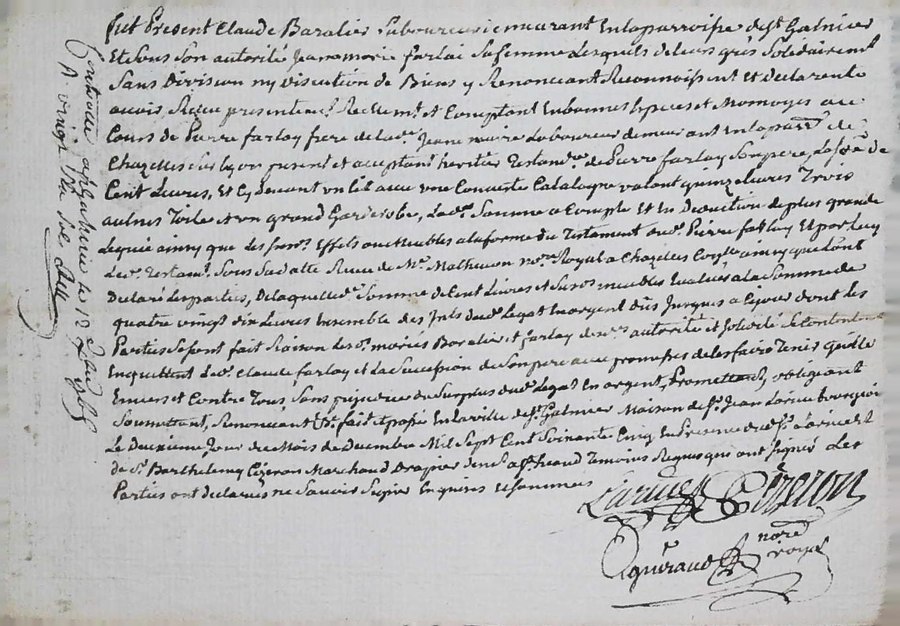 fut Present Claude Baralier Laboureur demeurant En la parroisse de St Galmier
Et sous son autorité Jeanne marie farlai Sa femme Lesquels de leurs grés Solidairement
Sans Division ny Discution de Biens y Renonceant Reconnoissent Et Declarent
avoir Receu presentem. Reellemt. et Comptant En bonnes Especes et Monnoyes au
Cours de Pierre farlay frere de lade. Jeanne marie Laboureur demeurant En la parr. de
Chazelles sur Lyon present et acceptant heritier Testamre. de Pierre farlay Son pere, La so̅e de
Cent Livres, Et Cy devant un lit avec une Couverte Catalogne valant quinze livres Trois
aulnes Toile et un grand Garderobe, Lade. Somme a Compte Et En Deduction de plus grande
Leguée ainsy que Les effets ou meubles a la forme du Testament dud. Pierre farlay
de. Testamt. Sous Sa datte Receu de Me. Mathevon nore. Royal a Chazelles ainsy que L'ont
Declaré Les parties, De laquelle de. Somme de Cent Livres et Susds. meubles Evalués a la Somme de
quatre vingt dix Livres Ensemble des Jnts. dud. Legat En argent dûs Jusques a ce jour dont Les
Parties Se sont fait Raison Les ds. mariés Baralier et farlay de mes. autorité et solidité Se Contentent
En quittent Led. Claude farlay et La Succession de Son pere avec promesses de les faire Tenir quitte
Envers et Contre Tous Sans prejudice du Surplus dud. Legat En argent, Promettant, obligeant
Soumettant, Renonceant &c. fait & passé En la ville de St. Galmier Maison de Sr. Jean Larue bourgeois
Le Deuxieme Jour du Mois de Decembre Mil Sept Cent Soixante Cinq En Presence dud. Sr. Larue et
de Sr. Barthelemy Cizeron Marchand Drapier Temoins Requis qui ont Signé Les
Parties ont declaré ne Scavoir Signer Enquises et Sommées
Larue Cizeron
Eguéraud nore.
royal
Controllé a St Galmier le 12 Xbre 1765
R vingt six sols